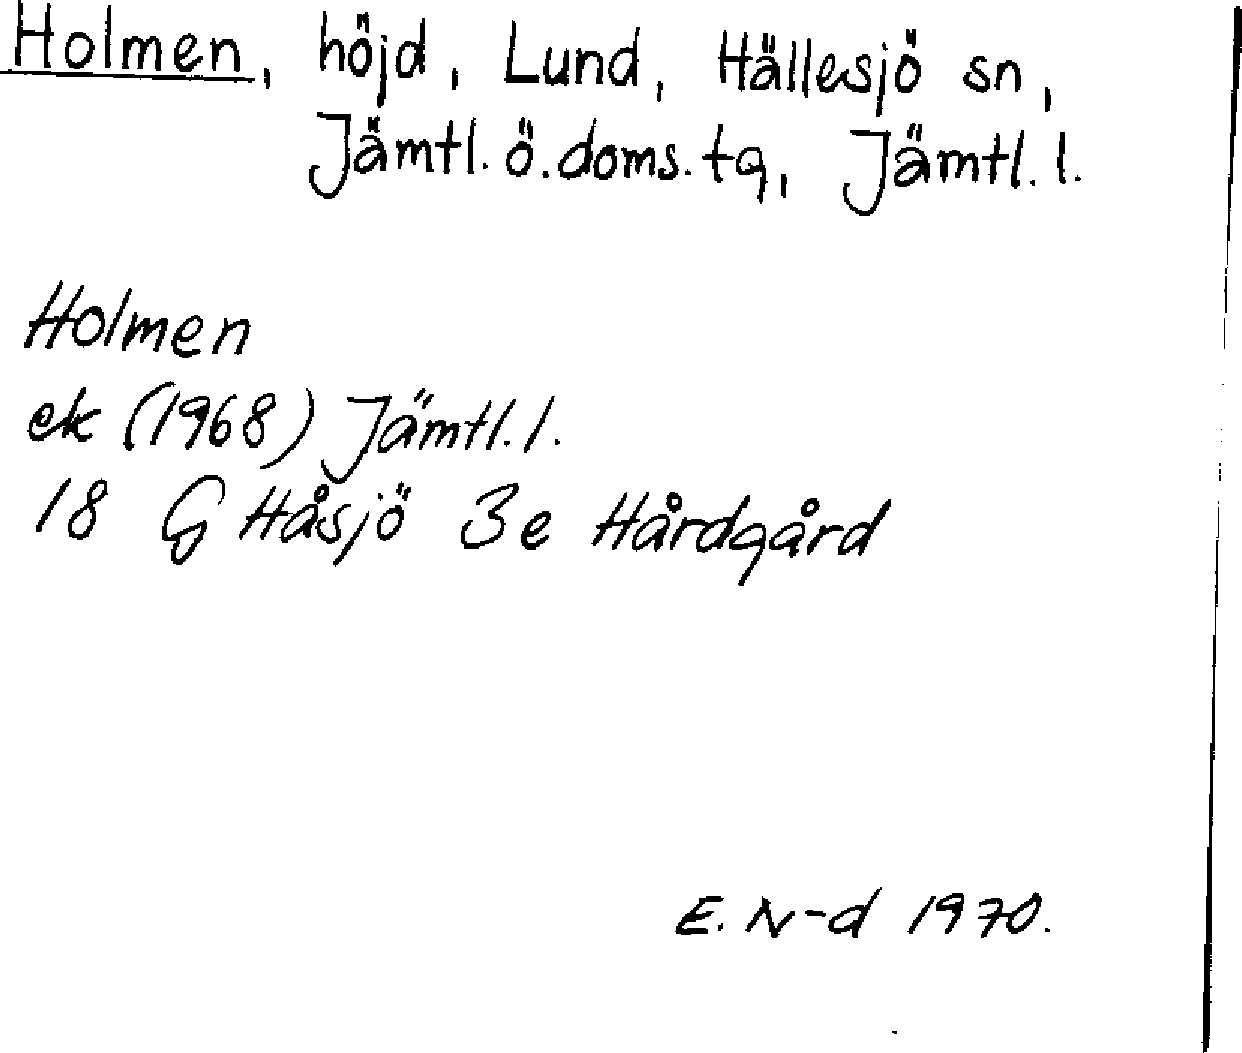 Holmen, höjd, Lund, Hällesjö sn,
Jämtl. ö. doms. tg, Jämtl. l.
Holmen
ek (1968) Jämtl. l.
18 G Håsjö 3e Hårdgård
E. N-d 1970.